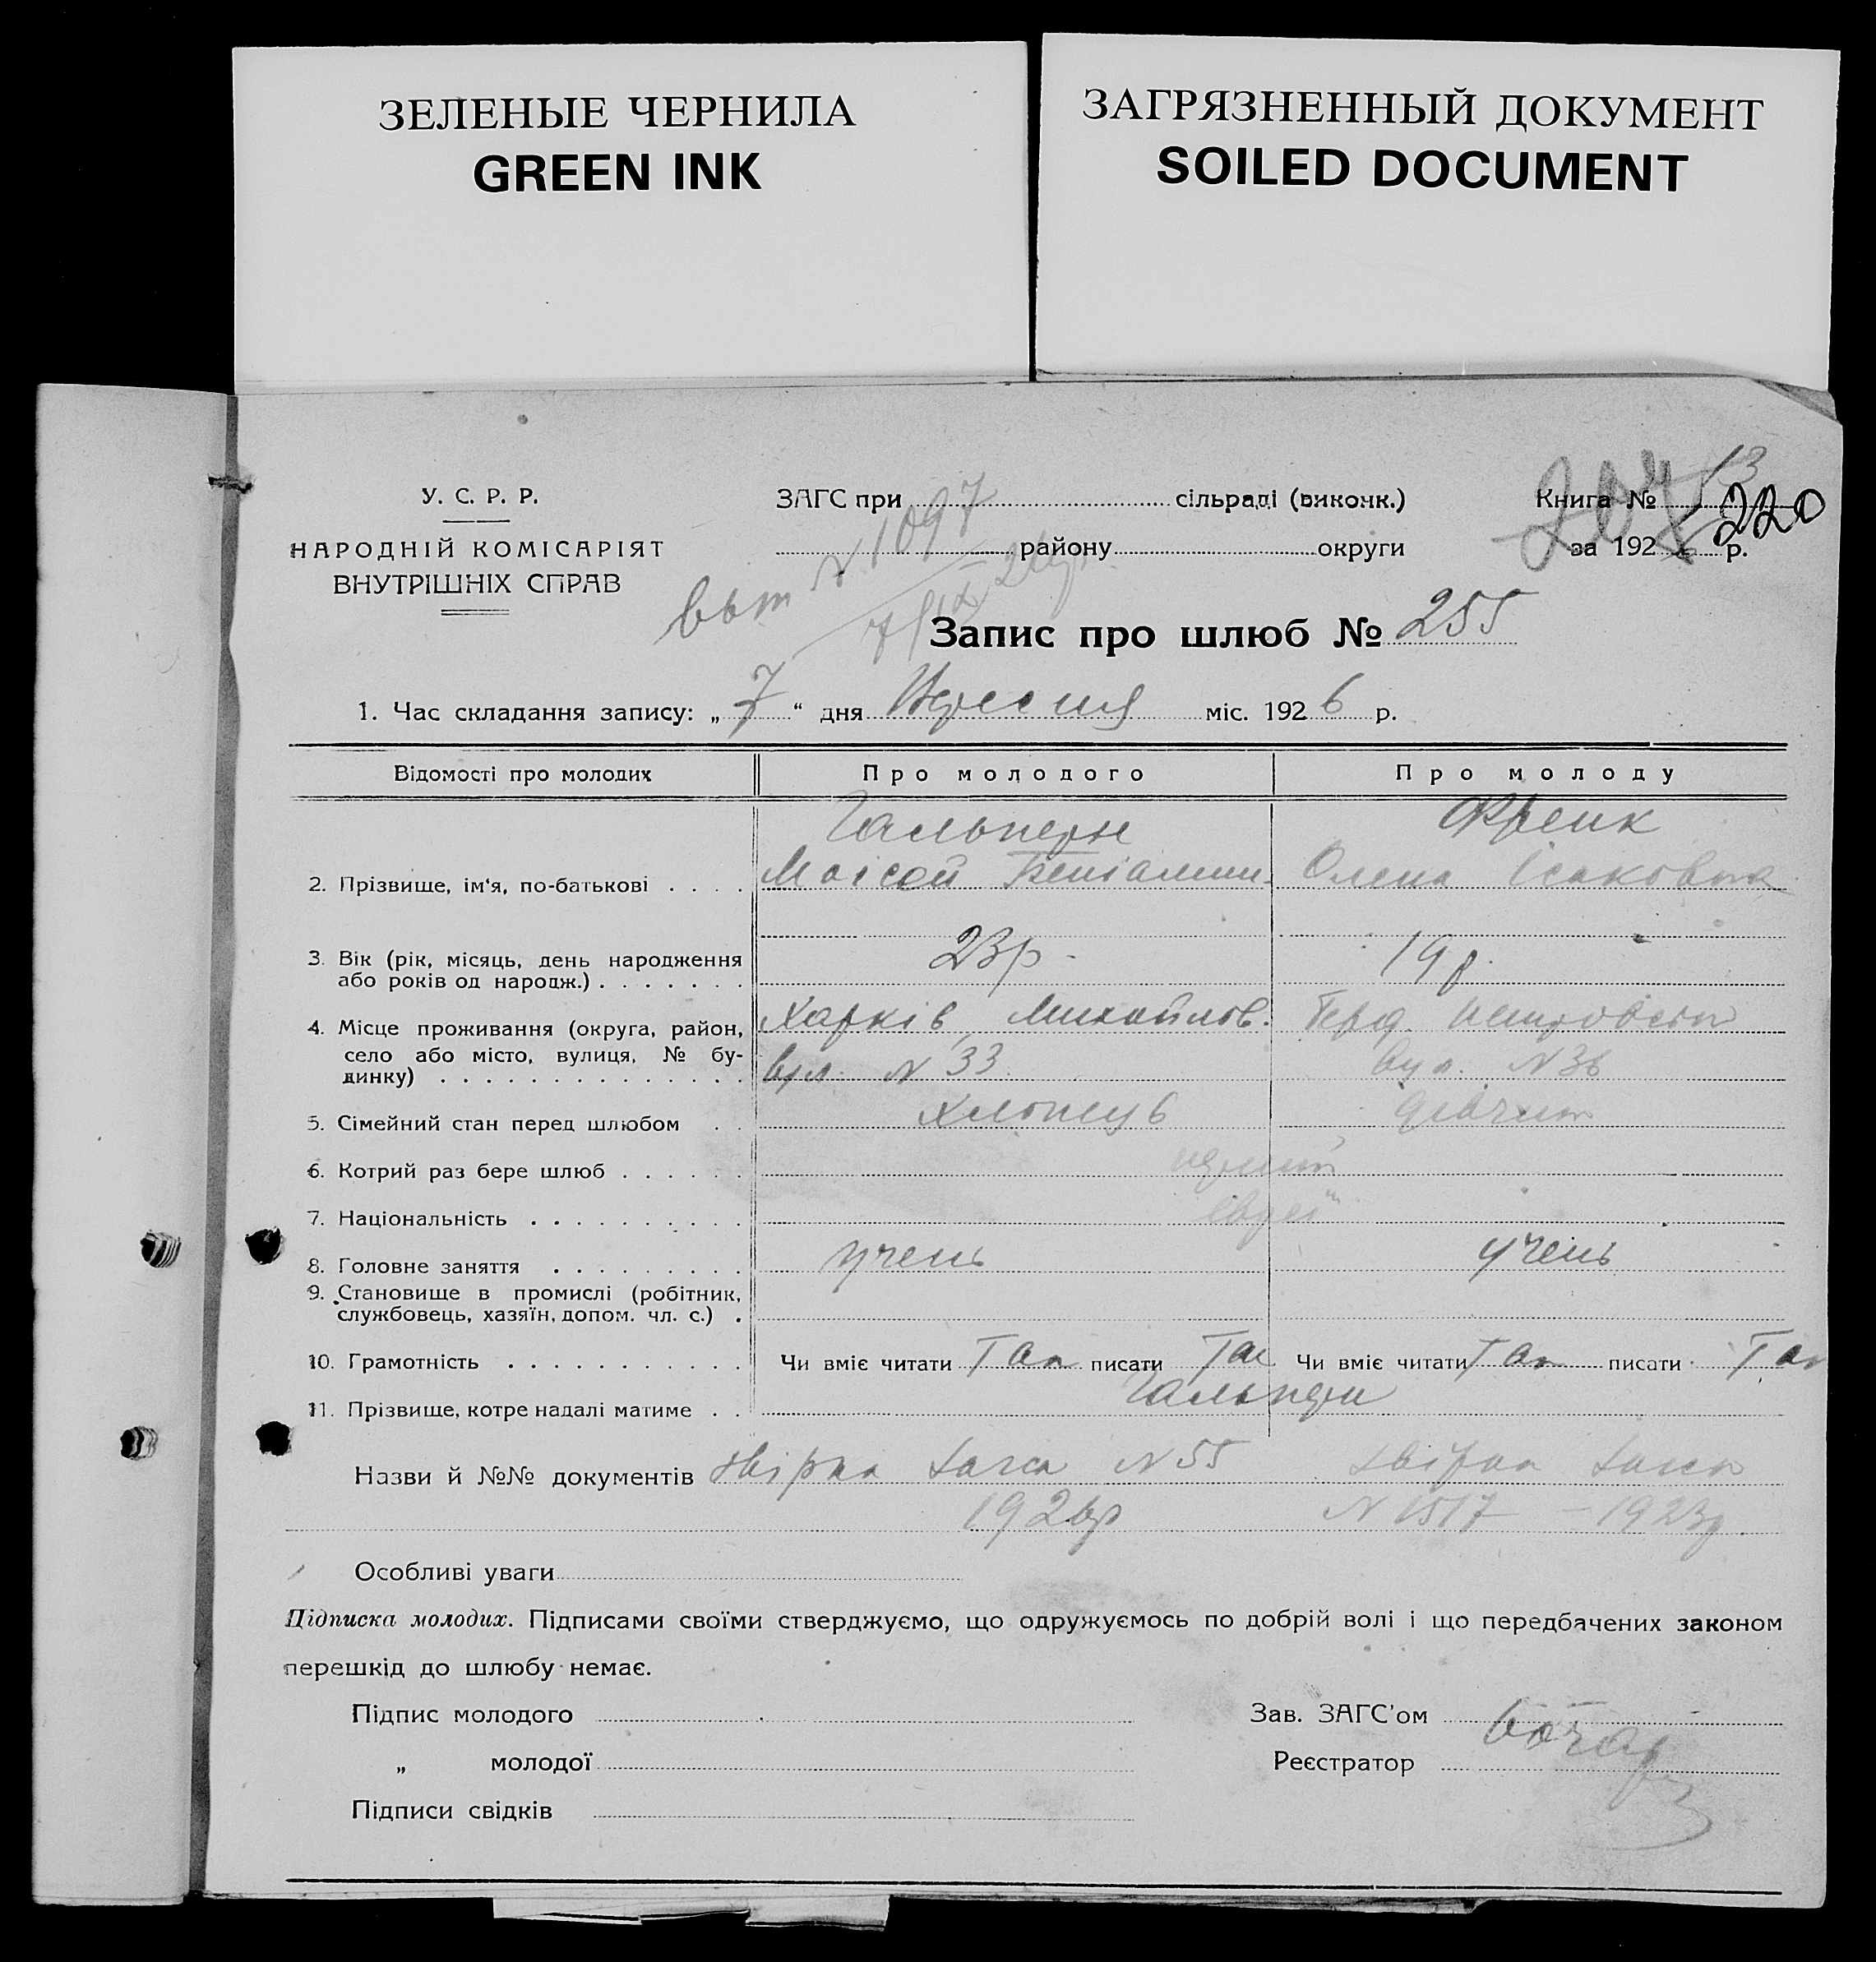 ЗЕЛЕНЫЕ ЧЕРНИЛА
GREEN INK
ЗАГРЯЗНЕННЫЙ ДОКУМЕНТ
SOILED DOCUMENT
У. С. Р. Р.
НАРОДНІЙ КОМІСАРІЯТ
ВНУТРІШНІХ СПРАВ
ЗАГС при сільраді (виконк.)
району округи
Книга № 13
220
за 192 р.
204
вып N 1097
Запис про шлюб № 255
1. Час складання запису: „ 7 “ дня Вересня міс. 1926 р.
Відомості про молодих Про молодого Про молоду
Гальперн Френк
2. Прізвище, ім‘я, по-батькові . . . . Моісей Беніамин. Олена Ісаковна
3. Вік (рік, місяць, день народження 23р. 19р.
або років од народж.) . . . . . . .
4. Місце проживання (округа, район, Харків, Михайлов. Берд.
село або місто, вулиця, № бу- вул. N 33 вул. N 36
динку) . . . . . . . . . . . . . .
5. Сімейний стан перед шлюбом . . хлопець дівчина
6. Котрий раз бере шлюб . . . . . . перший
7. Національність . . . . . . . . . . євреї
8. Головне заняття . . . . . . . . . учень учень
9. Становище в промислі (робітник,
службовець, хазяїн, допом. чл. с.) .
10. Грамотність . . . . . . . . . . . Чи вміє читати Так писати Так Чи вміє читати Так писати Так
11. Прізвище, котре надалі матиме . . Гальперн
Назви й №№ документів звірка Загса N 55 звірка Загса
1926р N 1517 – 1923р.
Особливі уваги
Підписка молодих. Підписами своїми стверджуємо, що одружуємось по добрій волі і що передбачених законом
перешкід до шлюбу немає.
Підпис молодого Зав. ЗАГС’ом
„ молодої Реєстратор
Підписи свідків